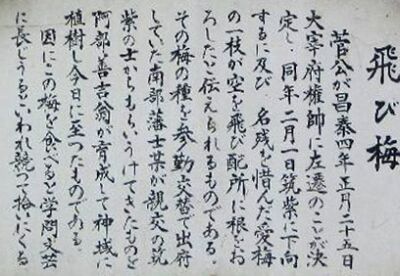 飛び梅
菅公が昌泰四年正月二十五日
大宰府権帥に左遷のことが決
定し、同年二月一日筑紫に下向
するに及び 名残を惜んだ愛梅
の一枝が空を飛び配所に根をお
ろしたと伝えられるものである。
その梅の種を参勤交替で出府
していた南部藩士某が親交の筑
紫の士からもらいうけてきたものを
阿部善吉翁が育成して神域に
植樹し今日に至つたものである。
因にこの梅を食べると学問文芸
に長じうるといわれ競つて拾いにくる